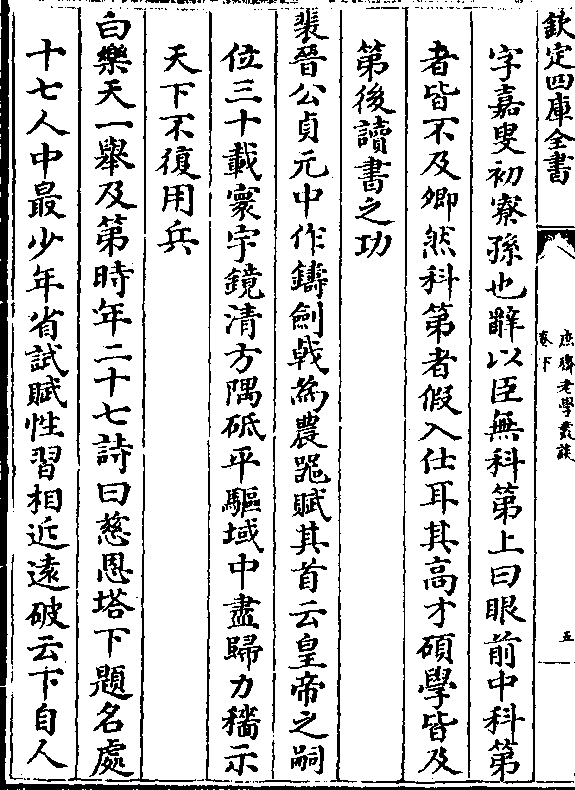 欽定四庫全書
庶齋老學叢談
卷下
五
字嘉叟初寮孫也辭以臣無科第上曰眼前中科第
者皆不及卿然科第者假入仕耳其高才碩學皆及
第後讀書之功
裴晉公貞元中作鑄劍戟為農器賦其首云皇帝之嗣
位三十載寰宇鏡清方隅砥平驅域中盡歸力穡示
天下不復用兵
白樂天一舉及第時年二十七詩曰慈恩塔下題名處
十七人中最少年省試賦性習相近遠破云下自人